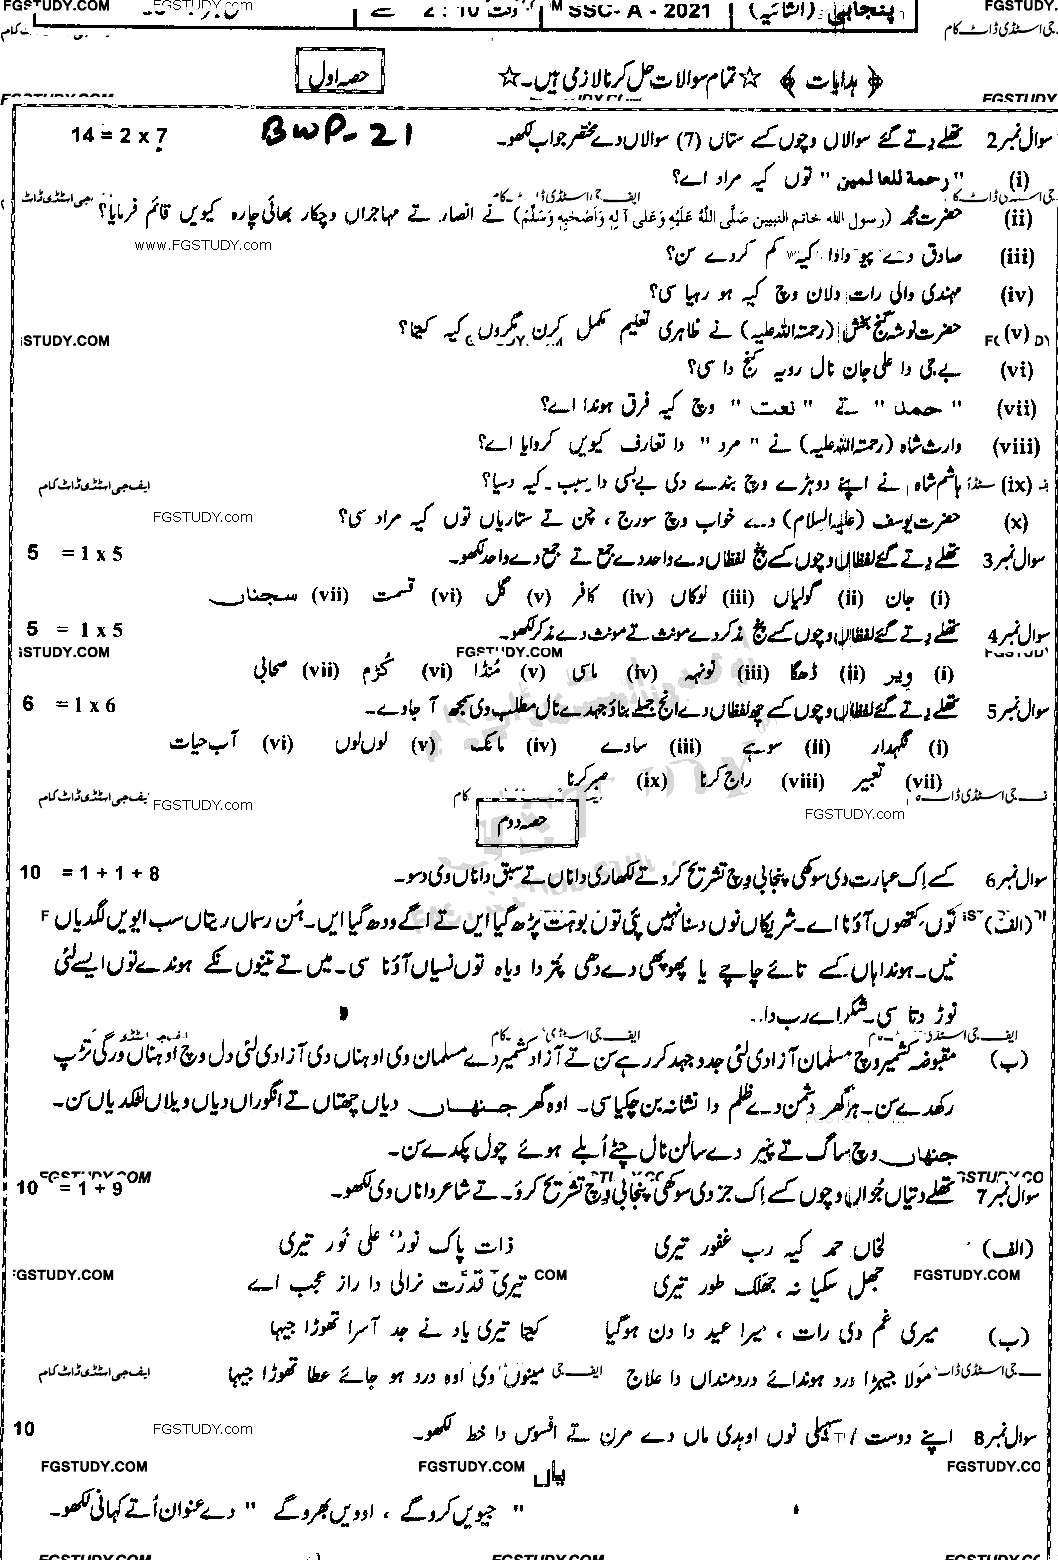 FGSTUDY.COM
پنجابی (انشائیہ) SSC-A-2021 وقت 2:10 FGSTUDY.COM
حصہ اول
﴿ ہدایات ﴾ ☆ تمام سوالات حل کرنا لازمی ہیں۔ ☆
BWP-21
سوال نمبر 2 تھلے دتے گئے سوالاں وچوں کسے ستاں (7) سوالاں دے مختصر جواب لکھو۔ 14 = 2 x 7
(i) "رحمة للعالمین" توں کیہ مراد اے؟
(ii) حضرت محمد (رسول اللہ خاتم النبیین صَلَّی اللہُ عَلَیْہِ وَعَلٰی آلِہٖ وَاَصْحَابِہٖ وَسَلَّمَ) نے انصار تے مہاجراں وچکار بھائی چارہ کیویں قائم فرمایا؟
www.FGSTUDY.com
(iii) صادق دے پیو دادا کیہ کم کردے سن؟
(iv) مہندی والی رات دلان وچ کیہ ہو رہیا سی؟
(v) حضرت نوشہ گنج بخش (رحمۃ اللہ علیہ) نے ظاہری تعلیم مکمل کرن مگروں کیہ کیتا؟
(vi) بے جی دا علی جان نال رویہ کنج دا سی؟
(vii) "حمد" تے "نعت" وچ کیہ فرق ہوندا اے؟
(viii) وارث شاہ (رحمۃ اللہ علیہ) نے "مرد" دا تعارف کیویں کروایا اے؟
(ix) ہاشم شاہ نے اپنے دوہڑے وچ بندے دی بے بسی دا سبب کیہ دسیا؟
ایف جی اسٹڈی ڈاٹ کام
FGSTUDY.com
(x) حضرت یوسف (علیہ السلام) دے خواب وچ سورج ، چن تے ستاریاں توں کیہ مراد سی؟
سوال نمبر 3 تھلے دتے گئے لفظاں وچوں کسے پنج لفظاں دے واحد دے جمع تے جمع دے واحد لکھو۔ 5 = 1 x 5
(i) جان (ii) گولیاں (iii) لوکاں (iv) کافر (v) گل (vi) قسمت (vii) سجناں
سوال نمبر 4 تھلے دتے گئے لفظاں وچوں کسے پنج مذکر دے مونث تے مونث دے مذکر لکھو۔ 5 = 1 x 5
FGSTUDY.COM
(i) ویر (ii) ڈھگا (iii) نونہہ (iv) ماسی (v) مُنڈا (vi) کُڑم (vii) صحابی
سوال نمبر 5 تھلے دتے گئے لفظاں وچوں کسے چھ لفظاں دے انج جملے بناؤ جہدے نال مطلب وی سمجھ آ جاوے۔ 6 = 1 x 6
(i) نگہدار (ii) سوہے (iii) سادے (iv) مانک (v) لوں لوں (vi) آب حیات
(vii) تعبیر (viii) راج کرنا (ix) صبر کرنا
FGSTUDY.com
حصہ دوم
FGSTUDY.com
سوال نمبر 6 کسے اِک عبارت دی سوکھی پنجابی وچ تشریح کرو تے لکھاری دا ناں تے سبق دا ناں وی دسو۔ 10 = 1 + 1 + 8
(الف) توں کتھوں آؤنا اے۔ شریکاں نوں دسنا نہیں پئی توں بوہت پڑھ گیا ایں تے اگے ودھ گیا ایں۔ ہُن رسماں ریتاں سب ایویں لگدیاں
نیں۔ ہوندا ہاں کسے تائے چاچے یا پھوپھی دے دھی پتر دا ویاہ توں نسیاں آؤنا سی۔ میں تے تینوں نکے ہوندے توں ایسے لئی
ٹور دتا سی۔ شکر اے رب دا۔
(ب) مقبوضہ کشمیر وچ مسلمان آزادی لئی جدوجہد کر رہے سن تے آزاد کشمیر دے مسلمان وی اوہناں دی آزادی لئی دل وچ اوہناں ورگی تڑپ
رکھدے سن۔ ہر گھر دشمن دے ظلم دا نشانہ بن چکیا سی۔ اوہ گھر جنھاں دیاں چھتاں تے انگوراں دیاں ویلاں لٹکدیاں سن۔
جنھاں وچ ساگ تے پنیر دے سالن نال چٹے اُبلے ہوئے چول پکدے سن۔
سوال نمبر 7 تھلے دتیاں جُزاں وچوں کسے اِک جز دی سوکھی پنجابی وچ تشریح کرو۔ تے شاعر دا ناں وی لکھو۔ 10 = 1 + 9
(الف) لخاں حمد کیہ رب غفور تیری ذات پاک نورٌ علیٰ نُور تیری
FGSTUDY.COM
جھل سکیا نہ جھلک طور تیری تیری قدرت نرالی دا راز عجب اے
(ب) میری غم دی رات ، میرا عید دا دن ہوگیا کیتا تیری یاد نے جد آسرا تھوڑا جیہا
مولا جیہڑا درد ہوندائے دردمنداں دا علاج مینوں وی اوہ درد ہو جائے عطا تھوڑا جیہا
ایف جی اسٹڈی ڈاٹ کام
سوال نمبر 8 اپنے دوست / سہیلی نوں اوہدی ماں دے مرن تے افسوس دا خط لکھو۔ 10
FGSTUDY.com
FGSTUDY.COM
یاں
"جیویں کرو گے ، اوویں بھرو گے" دے عنوان اُتے کہانی لکھو۔
FGSTUDY.COM